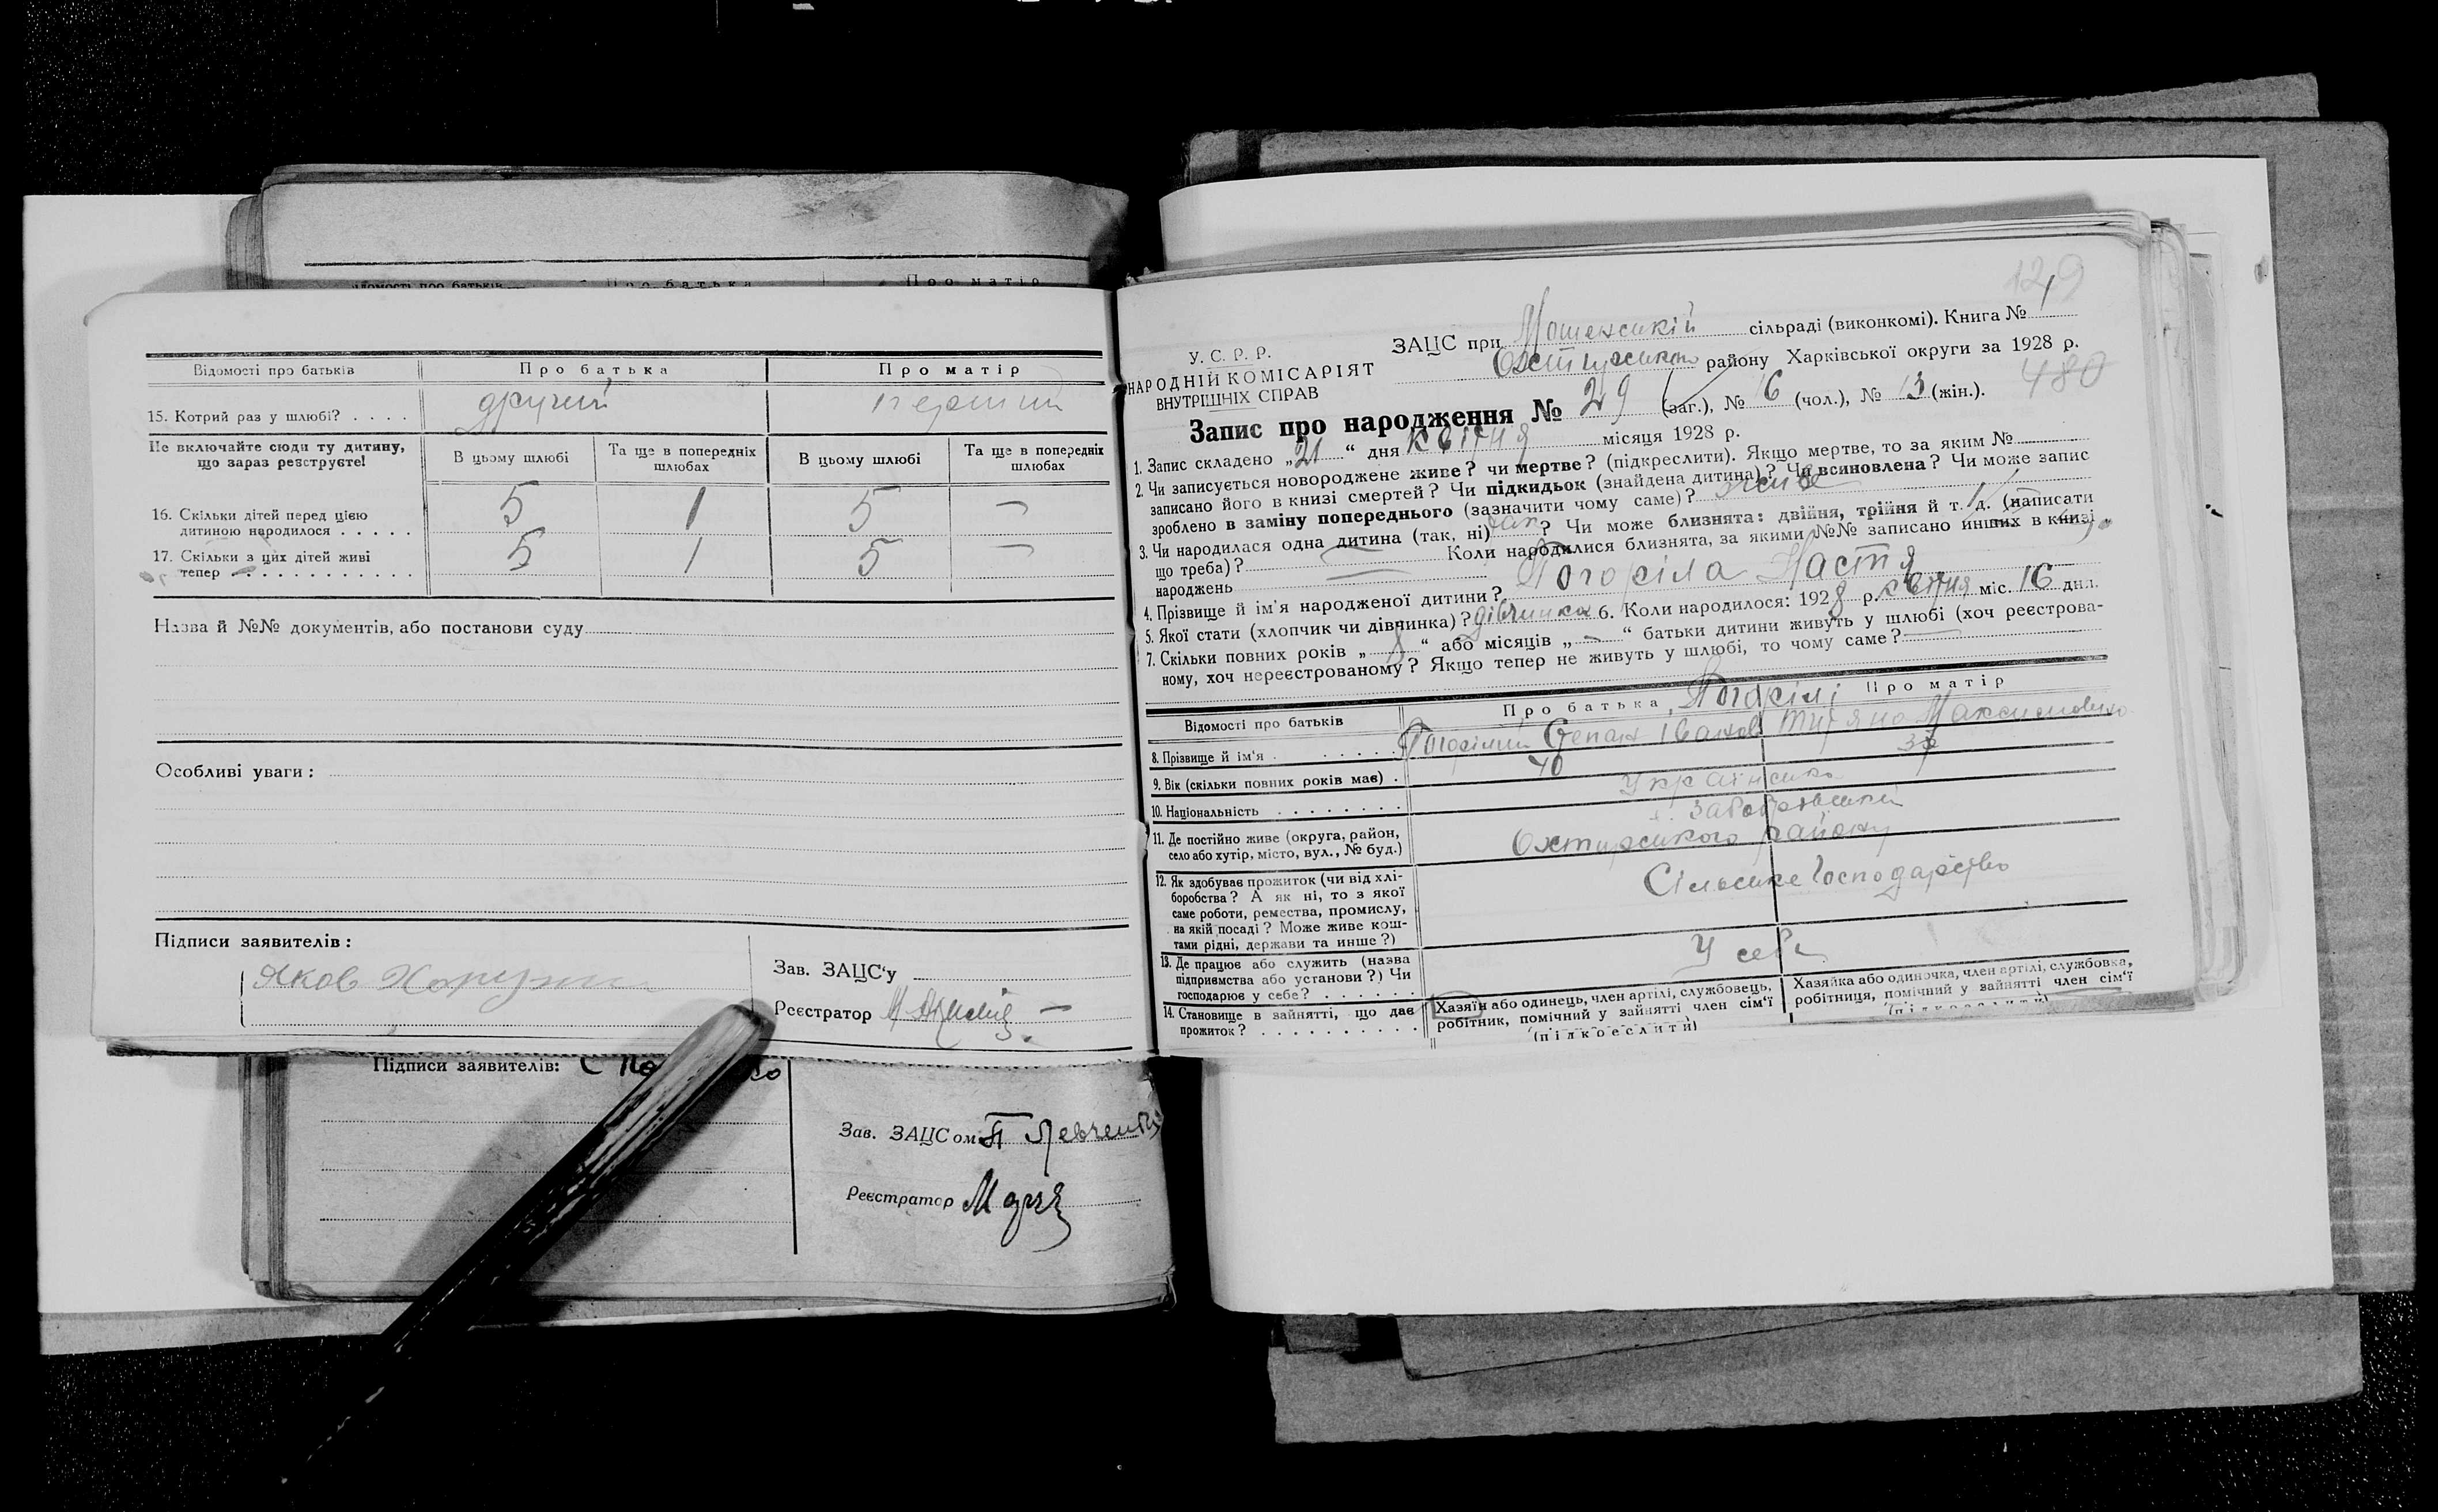 Відомості про батьків
Про батька
Про матір
15. Котрий раз у шлюбі? . . . .
другий
перший
Не включайте сюди ту дитину,
що зараз реєструєте!
В цьому шлюбі
Та ще в попередніх
шлюбах
В цьому шлюбі
Та ще в попередніх
шлюбах
16. Скільки дітей перед цією
дитиною народилося . . . . .
5
1
5
—
17. Скільки з цих дітей живі
тепер . . . . . . . . . . .
5
1
5
—
Назва й №№ документів, або постанови суду
Особливі уваги:
Підписи заявителів:
Яков
Зав. ЗАЦС'у
Реєстратор
Підписи заявителів:
Зав. ЗАЦСом
Реєстратор
129
У. С. Р. Р.
НАРОДНІЙ КОМІСАРІЯТ
ВНУТРІШНІХ СПРАВ
ЗАЦС при сільраді (виконкомі). Книга № 1
Охтирського району Харківської округи за 1928 р.
480
Запис про народження № 29 (заг.), № 16 (чол.), № 13 (жін.).
1. Запис складено „21“ дня квітня місяця 1928 р.
2. Чи записується новороджене живе? чи мертве? (підкреслити). Якщо мертве, то за яким №
записано його в книзі смертей? Чи підкидьок (знайдена дитина)? Чи всиновлена? Чи може запис
зроблено в заміну попереднього (зазначити чому саме)? живе
3. Чи народилася одна дитина (так, ні) так? Чи може близнята: двійня, трійня й т. д. (написати
що треба)? — Коли народилися близнята, за якими №№ записано инших в книзі
народжень —
4. Прізвище й ім'я народженої дитини? Погоріла Настя
5. Якої стати (хлопчик чи дівчинка)? дівчинка 6. Коли народилося: 1928 р. квітня міс. 16 дня.
7. Скільки повних років „8“ або місяців „—“ батьки дитини живуть у шлюбі (хоч реєстрова-
ному, хоч нереєстрованому? Якщо тепер не живуть у шлюбі, то чому саме? —
Відомості про батьків
Про батька
Погорілі
Про матір
8. Прізвище й ім'я . . . . . .
Погорілий Степан Іванов
Максимовна
9. Вік (скільки повних років має) .
40
10. Національність . . . . . . .
Українська
11. Де постійно живе (округа, район,
село або хутір, місто, вул., № буд.)
Охтирського району
12. Як здобуває прожиток (чи від хлі-
боробства? А як ні, то з якої
саме роботи, ремества, промислу,
на якій посаді? Може живе кош-
тами рідні, держави та инше?)
Сільське Господарство
13. Де працює або служить (назва
підприємства або установи?) Чи
господарює у себе? . . . . . .
У себе
14. Становище в зайнятті, що дає
прожиток? . . . . . . . . . .
Хазяїн або одинець, член артілі, службовець,
робітник, помічний у зайнятті член сім'ї
(підкреслити)
Хазяйка або одиночка, член артілі, службовка,
робітниця, помічний у зайнятті член сім'ї
(підкреслити)